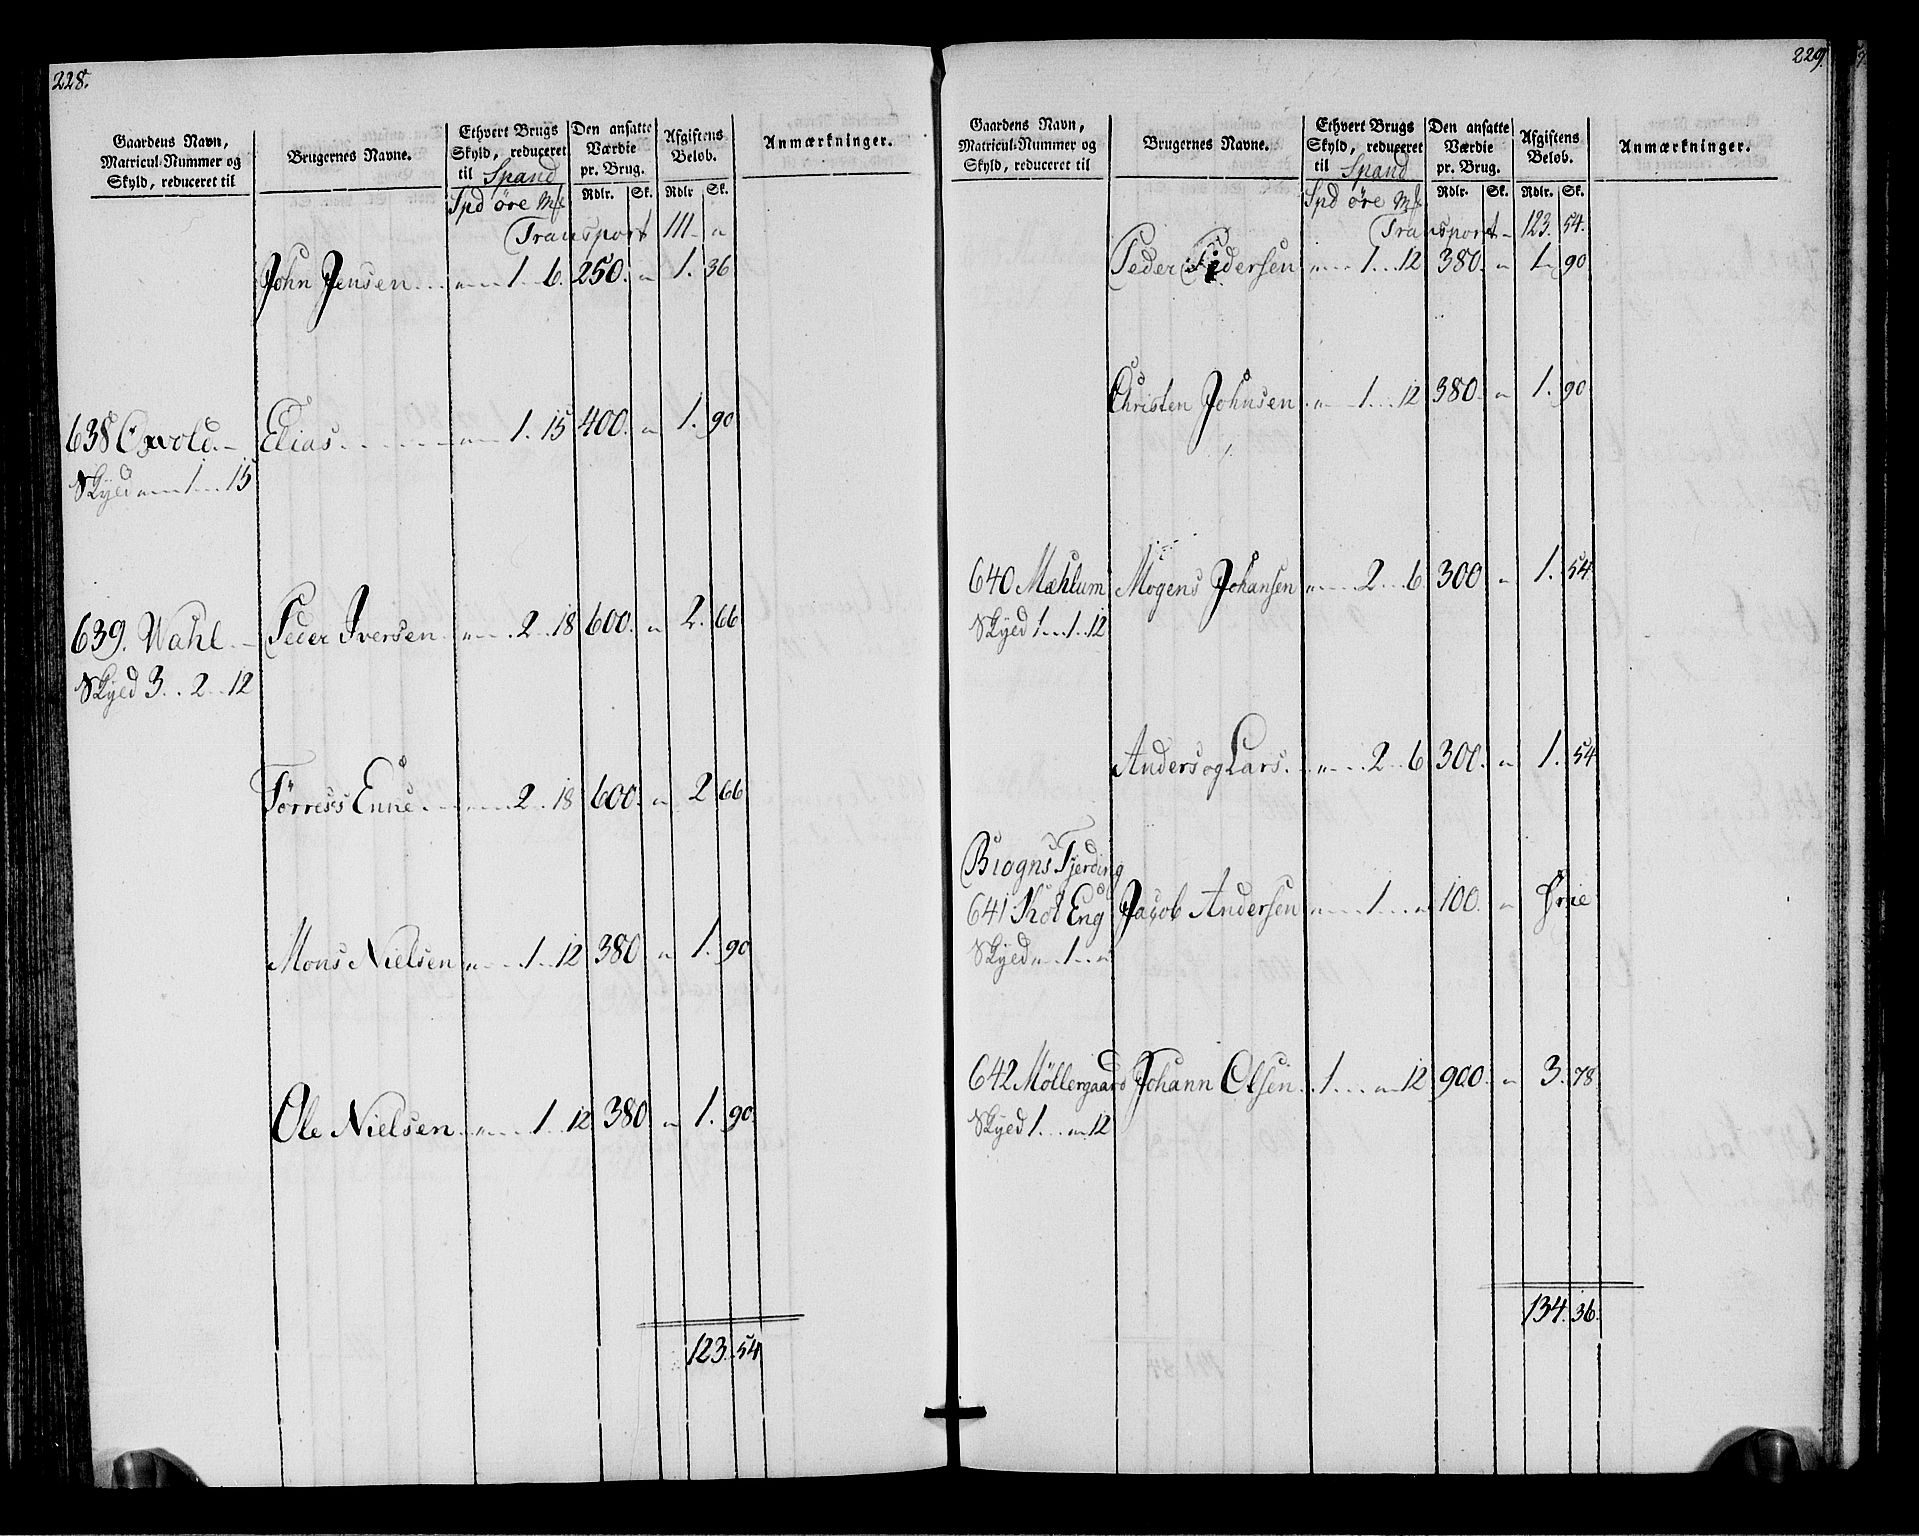 228.
Gaardens Navn,
Matricul-Nummer og
Skyld, reduceret til
Brugernes Navne.
Ethvert Brugs
Skyld, reduceret
til Spand
Den ansatte
Værdie
pr. Brug.
Afgiftens
Beløb.
Anmærkninger.
Spd öre Mk Rdlr. Sk. Rdlr Sk.
Transport 111. „
John Jensen „ 1. 6. 250. „ 1. 36
638 Oxvold. Elias „ 1. 15 400. „ 1. 90
Skyld „ 1 15
639. Wahl. Peder Iversen „ 2 18 600. „ 2. 66
Skyld 3. 2 12
Törress Enne „ 2 18 600. „ 2 66
Mons Nielsen „ 1 12 380 „ 1. 90
Ole Nielsen „ 1 12 380 „ 1. 90.
123. 54
229.
Gaardens Navn,
Matricul-Nummer og
Skyld, reduceret til
Brugernes Navne.
Ethvert Brugs
Skyld, reduceret
til Spand
Den ansatte
Værdie
pr. Brug.
Afgiftens
Beløb.
Anmærkninger.
Spd öre Mk Rdlr. Sk. Rdlr. Sk.
Transport 123. 54.
Peder Pedersen „ 1 12 380. „ 1 90
Christen Johnsen „ 1 12 380. „ 1. 90
640 Mæhlum Mogens Johansen „ 2 6 300 „ 1. 54
Skyld 1 1 12
Anders og Lars „ 2 6 300. „ 1. 54
Biogns Fjerding
641 Skol Eng Jacob Andersen „ 1 „ 100. „ frie
Skyld „ 1 „
642 Möllergaard Johann Olsen 1 „ 12 900. „ 3. 78
Skyld 1 „ 12
134. 36.